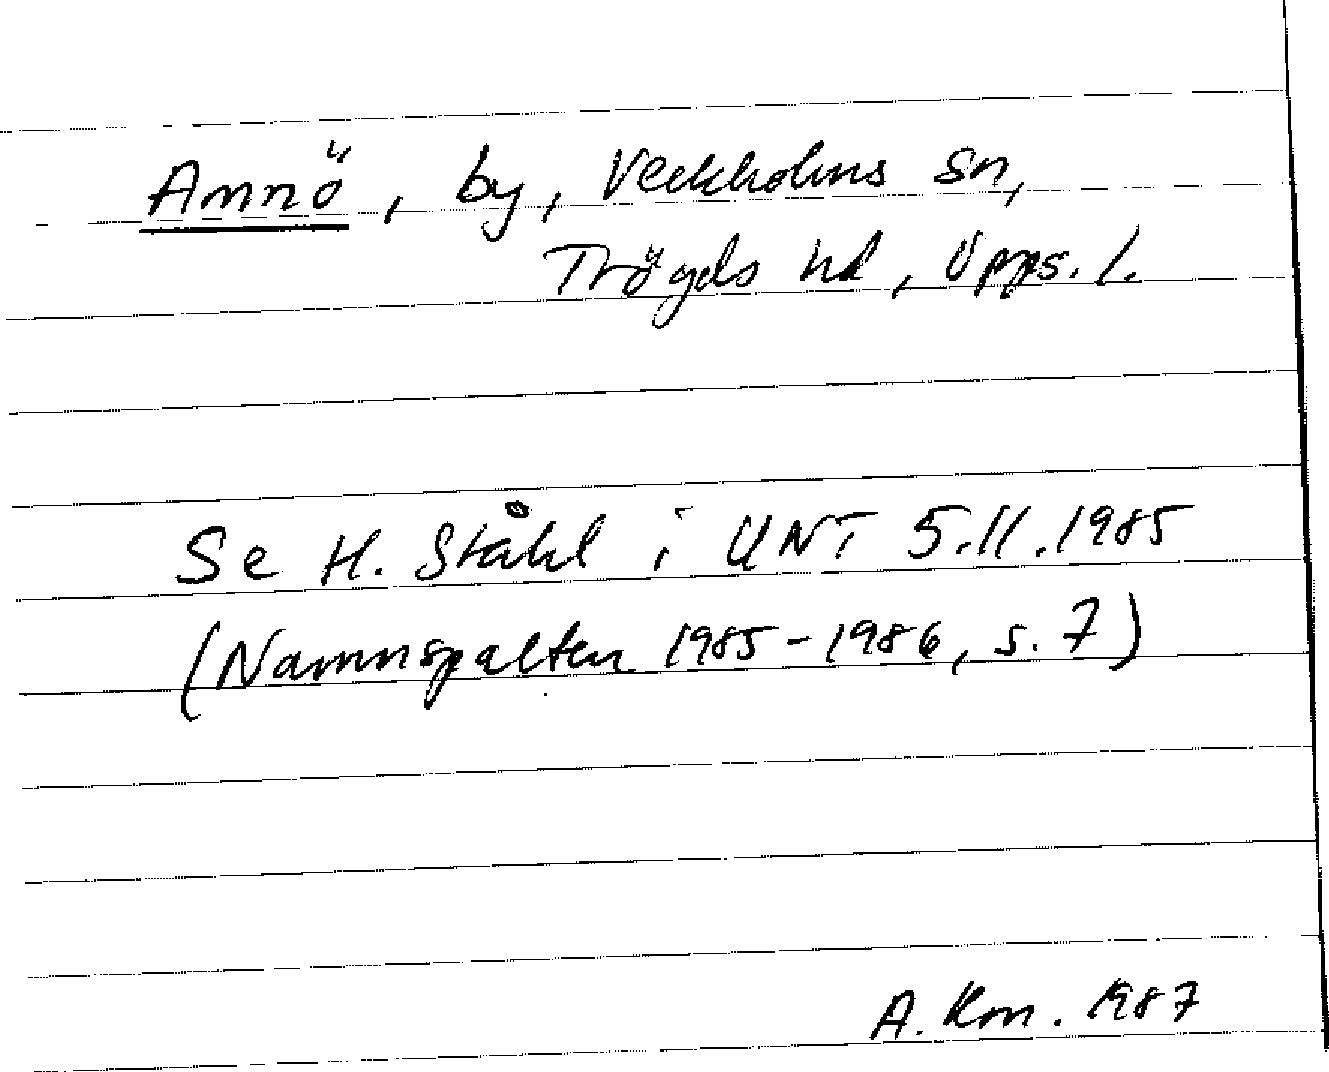 Amnö, by, Veckholms sn,
Trögds hd, Upps. l.
Se H. Ståhl i UNT 5.11.1985
(Namnspalten 1985-1986, s. 7)
A. Km. 1987